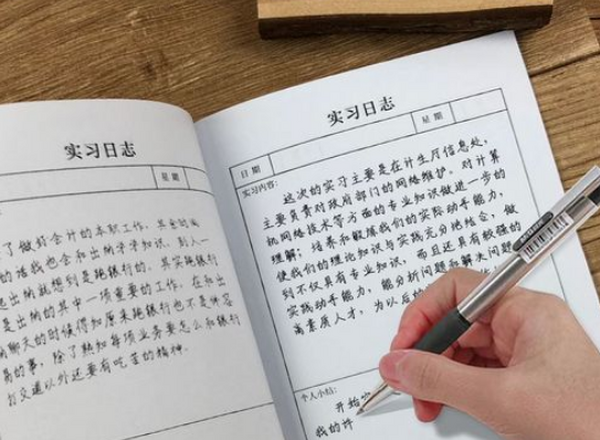 实习日志
星期
了做好会计的本职工作,其
的话我也会和出纳学学知识,别人一
起出纳就想到是跑银行的,其实跑银行
是出纳的其中一项重要的工作,在和出
纳聊天的时候得知原来跑银行也不是件容
易的事,除了熟知每项业务要怎么和银行
打交道以外还要有吃苦的精神。
实习日志
日期
星期
实习内容:
这次的实习主要是在计生月信息处,
主要负责对政府部门的网络维护。对计算
机网络技术等方面的专业知识做进一步的
理解;培养和锻炼我们的实际动手能力,
使我们的理论知识与实践充分地结合,做
到不仅具有专业知识,而且还具有较强的
实践动手能力,能分析问题和解决问题
高素质人才,为以后的 作
个人小结:
开始
我的许